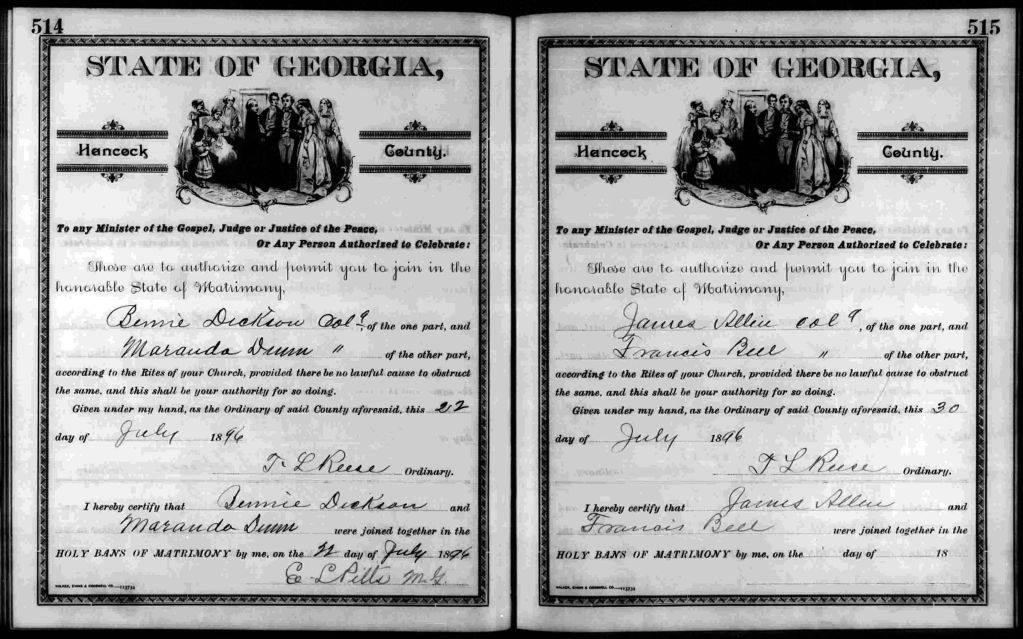 514
STATE OF GEORGIA,
Hancock County.
To any Minister of the Gospel, Judge or Justice of the Peace,
Or Any Person Authorized to Celebrate:
These are to authorize and permit you to join in the
honorable State of Matrimony,
Bennie Dickson Col'd, of the one part, and
Maranda Dunn " of the other part,
according to the Rites of your Church, provided there be no lawful cause to obstruct
the same, and this shall be your authority for so doing.
Given under my hand, as the Ordinary of said County aforesaid, this 22
day of July 1896
T. L Reese Ordinary.
I hereby certify that Bennie Dickson and
Maranda Dunn were joined together in the
HOLY BANS OF MATRIMONY by me, on the 22 day of July 1896
E. L Pitts M.G.
515
STATE OF GEORGIA,
Hancock County.
To any Minister of the Gospel, Judge or Justice of the Peace,
Or Any Person Authorized to Celebrate:
These are to authorize and permit you to join in the
honorable State of Matrimony,
James Allen Col'd, of the one part, and
Francis Bell " of the other part,
according to the Rites of your Church, provided there be no lawful cause to obstruct
the same, and this shall be your authority for so doing.
Given under my hand, as the Ordinary of said County aforesaid, this 30
day of July 1896
T L Reese Ordinary.
I hereby certify that James Allen and
Francis Bell were joined together in the
HOLY BANS OF MATRIMONY by me, on the day of 18